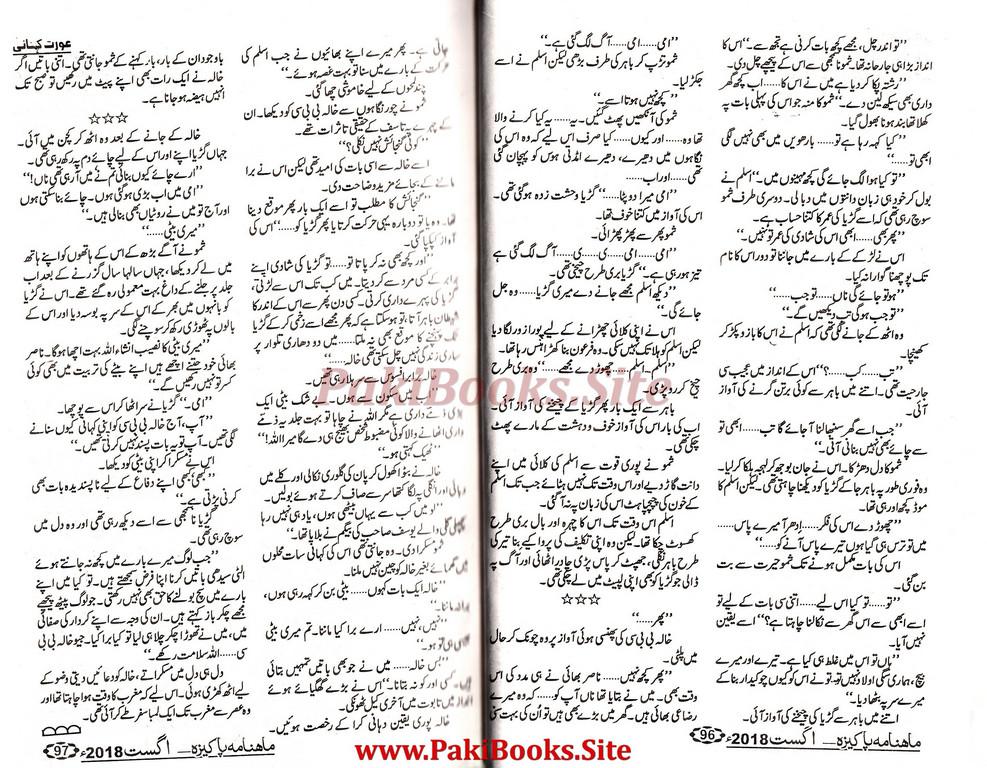 ’’تو اندر چل، مجھے کچھ بات کرنی ہے تجھ سے۔‘‘ اس کا
انداز بڑا ہی جارحانہ تھا۔ شمو نا سمجھی سے اس کے پیچھے چل دی۔
’’رشتہ پکا کر دیا ہے میں نے اس کا...... اب کچھ گھر
داری بھی سیکھ لین دے۔‘‘ شمو کا منہ جو اس کی پہلی بات پہ
کھلا تھا بند ہونا بھول گیا۔
’’کیا کہہ رہا ہے تو...... بارھویں میں بھی نہیں لگی
ابھی تو......‘‘
’’تو کیا ہوا لگ جائے گی کچھ مہینوں میں۔‘‘ اسلم نے
بول کر خود ہی زبان دانتوں میں دبا لی۔ دوسری طرف شمو
سوچ رہی تھی کہ اسے گڑیا کی عمر کا کتنا حساب ہے۔
’’پھر بھی...... ابھی اس کی شادی کی عمر تو نہیں۔‘‘
اس نے لڑکے کے بارے میں جاننا تو دور اس کا نام
تک پوچھنا گوارا نہ کیا۔
’’ہو تو جائے گی ناں...... تو جب......‘‘
’’تو جب ہو گی تب دیکھیں گے۔‘‘
وہ اٹھ کے جانے لگی تھی کہ اسلم نے اس کا بازو پکڑ کر
کھینچا۔
’’تب...... کب......؟‘‘ اس کے انداز میں عجیب سی
جارحیت تھی۔ اتنے میں باہر سے کوئی برتن گرنے کی آواز
آئی۔
’’جب اسے گھر سنبھالنا آ جائے گا تب...... ابھی تو
سے چائے بھی نہیں بنانی آتی۔‘‘
شمو کا دل دھڑکا۔ اس نے جان بوجھ کر لہجہ ہلکا کر لیا۔
وہ فوری طور پہ باہر جا کے گڑیا کو دیکھنا چاہتی تھی۔ لیکن اسلم کا
موڈ کچھ اور ہی تھا۔
’’چھوڑ دے اس کی فکر...... ادھر آ میرے پاس......
میں تو ترس ہی گیا ہوں تیرے پاس آنے کو......‘‘
اس کی بات مکمل ہونے تک شمو حیرت سے بت
بن گئی۔
’’تو...... تو کیا اس لیے...... اتنی سی بات کے لیے تو
اسے ابھی سے اس گھر سے نکالنا چاہتا ہے؟‘‘ اسے یقین
نہیں آیا۔
’’ہاں تو اس میں غلط ہی کیا ہے۔ تیرے اور میرے
بیچ، ہماری سگی اولاد نہیں تو، تو نے اس کو کیوں چوکیدار بنا کے
میرے سر پہ بٹھا دیا۔‘‘
اتنے میں باہر سے گڑیا کی چیخنے کی آواز آئی۔
ماہنامہ پاکیزہ — اگست 2018ء 96
’’امی...... امی...... آگ لگ گئی ہے۔‘‘
شمو تڑپ کر باہر کی طرف بڑھی لیکن اسلم نے اسے
جکڑ لیا۔
’’کچھ نہیں ہوتا اسے۔‘‘
شمو کی آنکھیں پھٹ گئیں۔ یہ...... یہ کیا کرنے والا
تھا وہ...... اور کیوں...... کیا صرف اس لیے کہ وہ اس کی
نگاہوں میں دھیرے، دھیرے امڈتی ہوس کو پہچان گئی
تھی...... اور اب......
’’امی! میرا دوپٹا......‘‘ گڑیا وحشت زدہ ہو گئی تھی۔
اس کی آواز میں کتنا خوف تھا۔
شمو پھر سے پھڑ پھڑائی۔
’’امی...... امی...... ی...... ی...... آگ لگ گئی ہے
تیز ہو رہی ہے۔‘‘ گڑیا بری طرح چیخی تھی۔
’’دیکھ اسلم مجھے جانے دے میری گڑیا...... وہ جل
جائے گی۔‘‘
اس نے اپنی کلائی چھڑانے کے لیے پورا زور لگا دیا
لیکن اسلم کو ہلا تک نہیں سکی۔ وہ فرعون بنا کھڑا ہنس رہا تھا۔
’’اسلم...... اسلم...... چھوڑ دے مجھے......‘‘ وہ بری طرح
چیخ کر رو دی تھی۔
باہر سے ایک بار پھر گڑیا کے چیخنے کی آواز آئی۔
اب کی بار اس کی آواز خوف و دہشت کے مارے پھٹ
چکی تھی۔
شمو نے پوری قوت سے اسلم کی کلائی میں اپنے
دانت گاڑ دیے اور اس وقت تک نہیں ہٹائے جب تک اسلم
کے خون کی چپچپاہٹ اس کی زبان پہ نہ آ گئی۔
اسلم اس وقت تک اس کا چہرہ اور بال بری طرح
کھسوٹ چکا تھا۔ لیکن وہ اپنی تکلیف کی پروا کیے بنا تیر کی
طرح باہر نکلی، جھپٹ کر پاس پڑی چادر اٹھائی اور آگ پہ
ڈالی جو گڑیا کو بھی اپنی لپیٹ میں لے چکی تھی۔
☆☆☆
’’پھر......‘‘
خالہ بی بی سی کی پھنسی ہوئی آواز پہ وہ چونک کر حال
میں پلٹی۔
’’پھر کچھ نہیں...... ناصر بھائی نے ہی مدد کی اس
وقت بھی۔ میں نے بتایا تھا ناں آپ کو...... کہ وہ میرے
رضاعی بھائی ہیں۔ گھر میں بڑے بھی ہیں تو اُن کی بہت سنی
عورت کہانی
جاتی ہے۔ پھر میرے اپنے بھائیوں نے جب اسلم کی
حرکت کے بارے میں سنا تو بہت غصہ ہوئے۔‘‘
چند لمحوں کے لیے خاموشی چھا گئی۔
شمو نے چور نگاہوں سے خالہ بی بی سی کو دیکھا۔ ان
کے چہرے پہ تاسف کے حقیقی تاثرات تھے۔
’’کوئی گنجائش نہیں نکلی؟‘‘
اسے خالہ سے اسی بات کی امید تھی لیکن اس نے برا
ماننے کے بجائے مزید وضاحت دی۔
’’گنجائش کا مطلب تو اسے ایک بار پھر موقع دینا
تھا۔ وہ یا تو دوبارہ یہی حرکت کرتا یا پھر گڑیا کو......‘‘ اس کی
آواز کپکپا گئی۔
’’اور کچھ بھی نہ کر پاتا تو...... تو گڑیا کی شادی اپنے
برابر کے کسی مرد سے کر دیتا۔ میں کب تک اس سے لڑتی،
گڑیا کی پہرے داری کرتی۔ کسی دن پھر سے اس کے اندر کا
شیطان باہر آتا، تو ہو سکتا ہے کہ پھر مجھے اسے زخمی کر کے گڑیا
تک پہنچنے کا موقع بھی نہ ملتا...... میں دو دھاری تلوار پر
ساری زندگی نہیں چل سکتی تھی خالہ......‘‘
خالہ برابر افسوس سے سر ہلا رہی تھیں۔
بے شک بیٹی ایک
بڑی ذمے داری ہے مگر اللہ نے چاہا تو بہت جلد یہ ذمے
داری اٹھانے والا کوئی مضبوط شخص بھیج ہی دے گا میرا اللہ!‘‘
’’ٹھیک کہتی ہو۔‘‘
خالہ نے بٹوا کھول کر پان کی گلوری نکالی اور کلے میں
دبا لی اور انگلی پہ لگا کتھا سر سے صاف کرتے ہوئے بولیں۔
’’لو میں کب سے یہاں بیٹھی ہوں، یاد ہی نہیں رہا
پچھلی گلی والے یوسف صاحب کی بیگم نے بلایا تھا۔‘‘
شمو مسکرا دی۔ وہ جانتی تھی اس کی کہانی سات محلوں
میں گھمائے بغیر خالہ کو چین نہیں ملنا۔
’’خالہ ایک بات کہوں...... بیٹی بن کر کہہ رہی ہوں،
برا نہ ماننا۔‘‘
’’نہیں، نہیں...... ارے برا کیا ماننا۔ تم میری بیٹی
جیسی ہی تو ہو۔‘‘
’’بس خالہ...... میں نے جو بھی باتیں تمہیں بتائی
ہیں۔ کسی اور کو نہ بتانا۔‘‘ اس نے بڑے گھگیائے ہوئے
انداز میں تابوت میں آخری کیل ٹھونکی۔
خالہ پوری یقین دہانی کرا کے رخصت ہوئیں۔
باوجود ان کے بار، بار کہنے کے شمو جانتی تھی۔ اتنی باتیں اگر
خالہ نے ایک رات بھی اپنے پیٹ میں رکھیں تو صبح تک
انہیں ہیضہ ہو جانا ہے۔
☆☆☆
خالہ کے جانے کے بعد وہ اٹھ کر کچن میں آئی۔
جہاں گڑیا اپنے اور اس کے لیے چائے دم پہ رکھ رہی تھی۔
’’ارے چائے کیوں بنائی تم نے میں آ رہی تھی ناں!‘‘
’’امی میں اب بڑی ہو گئی ہوں۔ چائے بنا سکتی ہوں
اور آج تو میں نے روٹیاں بھی بنا لی ہیں۔‘‘
’’میری بیٹی......‘‘
شمو نے آگے بڑھ کے اس کے ہاتھوں کو اپنے ہاتھ
میں لے کر دیکھا، جہاں سالہا سال گزرنے کے بعد اب
جلد پر جلنے کے داغ بہت معمولی رہ گئے تھے۔ اس نے گڑیا
کو بانہوں میں بھر کے اس کے سر پہ بوسہ دیا اور اس کے
بالوں پہ ٹھوڑی رکھ کر سوچنے لگی۔
’’میری بیٹی کا نصیب انشاء اللہ بہت اچھا ہو گا۔ ناصر
بھائی خود جتنے اچھے ہیں اپنے بیٹے کی تربیت میں بھی کوئی
کسر تو نہیں رکھیں گے۔‘‘
’’امی......‘‘ گڑیا نے سر اٹھا کر اس سے پوچھا۔
’’آپ، آج خالہ بی بی سی کو اپنی کہانی کیوں سنانے
لگی تھیں۔ آپ تو یہ بات پسند نہیں کرتی تھیں۔‘‘
اس نے مسکرا کر اپنی بیٹی کو دیکھا۔
’’کبھی کبھی اپنے دفاع کے لیے ناپسندیدہ بات بھی
کرنی پڑتی ہے۔‘‘
گڑیا نا سمجھی سے اسے دیکھ رہی تھی اور وہ دل میں
سوچ رہی تھی۔
’’جب لوگ میرے بارے میں کچھ نہ جانتے ہوئے
الٹی سیدھی باتیں کرنا اپنا فرض سمجھتے ہیں۔ تو کیا میں اپنے
بارے میں سچ بولنے کا حق بھی نہیں رکھتی۔ جو لوگ پیٹھ پیچھے
مجھے چکر باز کہتے ہیں۔ ان کی وجہ سے اپنے کردار کی صفائی
میں، میں نے تھوڑا چکر چلا ہی لیا تو کیا برا کیا۔ جیو خالہ بی بی
سی...... اللہ سلامت رکھے۔‘‘
دل ہی دل میں مسکراتے، خالہ کو دعائیں دیتی وضو کے
لیے اٹھ کھڑی ہوئی۔ اس لیے کہ مغرب کا وقت ہوا چاہتا تھا اور
وہ عصر سے مغرب تک ایک لمبا سفر طے کر آئی تھی۔
ماہنامہ پاکیزہ — اگست 2018ء 97
PakiBooks.Site
www.PakiBooks.Site